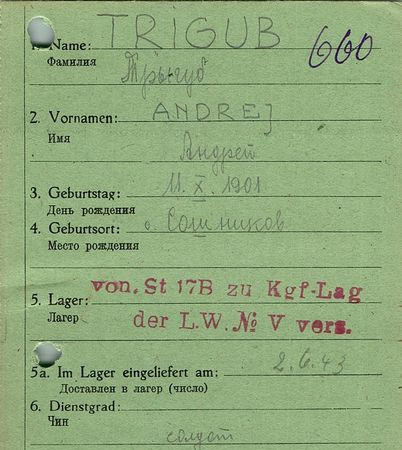 1. Name: TRIGUB 660
Фамилия Трыгуб
2. Vornamen: ANDREJ
Имя Андрей
3. Geburtstag: 11. X. 1901
День рождения
4. Geburtsort: с. Сошников
Место рождения
von. St 17B zu Kgf-Lag
5. Lager:
Лагер der L.W. No V vers.
5a. Im Lager eingeliefert am: 2.6.43
Доставлен в лагер (число)
6. Dienstgrad:
Чин солдат